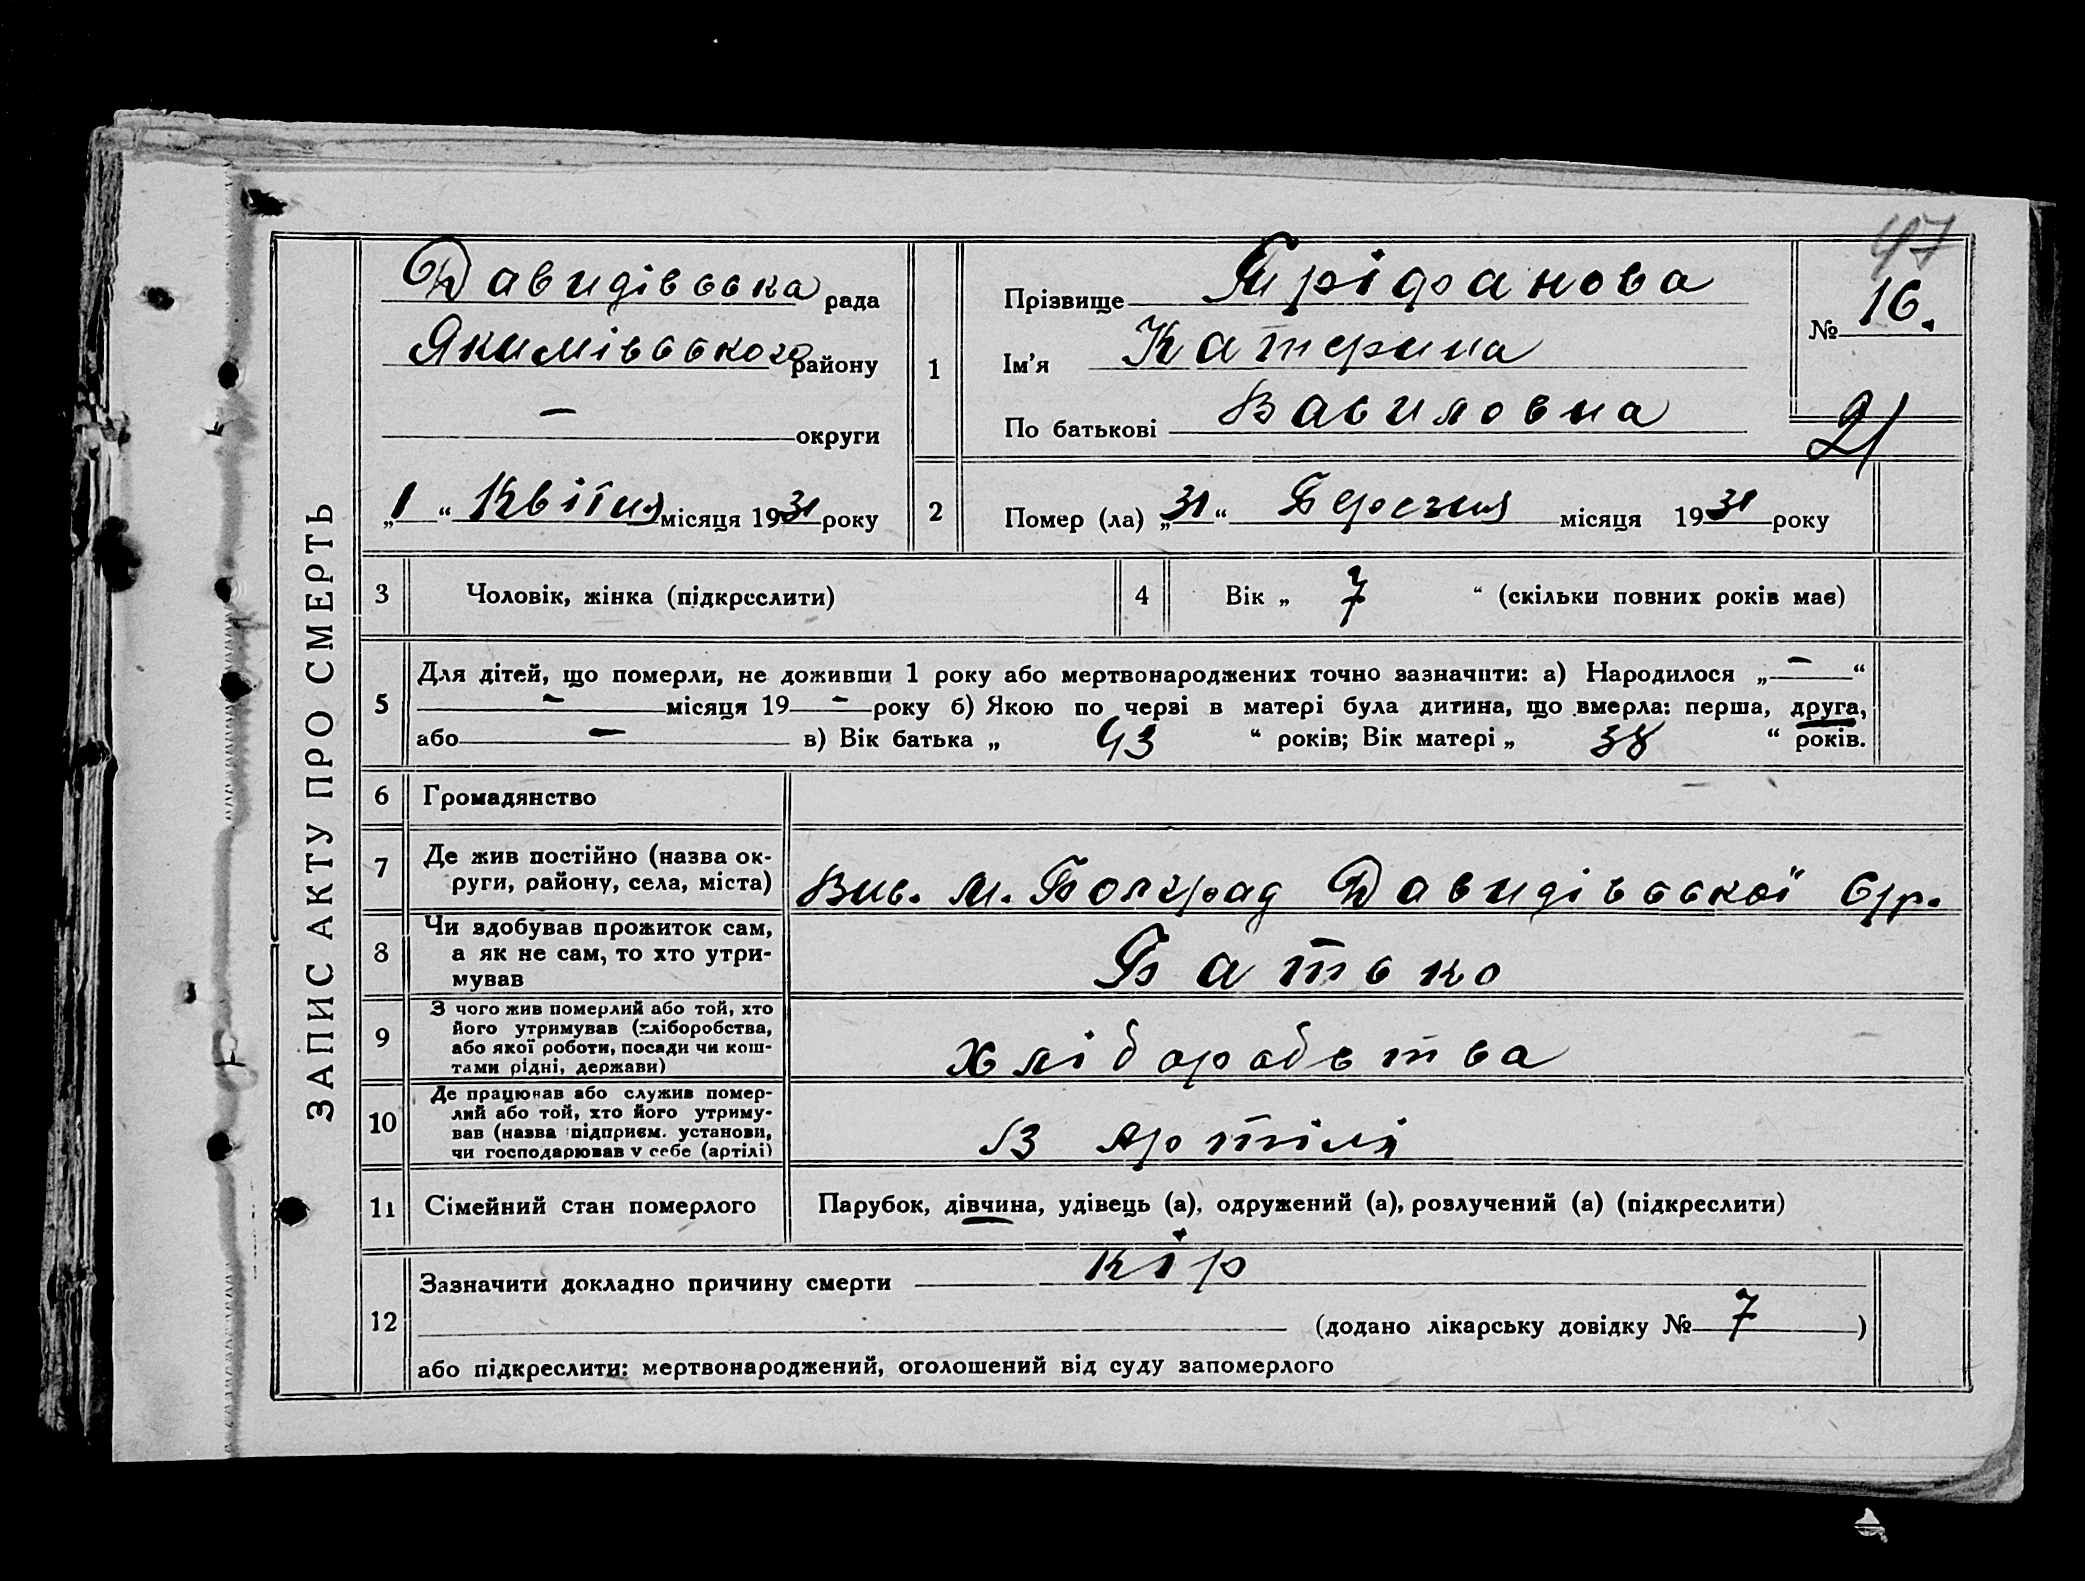 47
ЗАПИС АКТУ ПРО СМЕРТЬ
Давидівська рада
Якимівського району
— округи
„1“ Квітня місяця 1931 року
1
Прізвище Тріфанова
Ім'я Катерина
По батькові Вавиловна
№ 16.
21
2 Помер (ла) „31“ Березня місяця 1931 року
3 Чоловік, жінка (підкреслити)
4 Вік „ 7 “ (скільки повних років має)
5 Для дітей, що померли, не доживши 1 року або мертвонароджених точно зазначити: а) Народилося „—“
— місяця 19 — року б) Якою по черзі в матері була дитина, що вмерла: перша, друга,
або — в) Вік батька „ 43 “ років; Вік матері „ 38 “ років.
6 Громадянство
7 Де жив постійно (назва ок-
руги, району, села, міста)
М. Болград Давидівської
8 Чи здобував прожиток сам,
а як не сам, то хто утри-
мував
Батько
9 З чого жив померлий або той, хто
його утримував (хліборобства,
або якої роботи, посади чи кош-
тами рідні, держави)
хліборобства
10 Де працював або служив помер-
лий або той, хто його утриму-
вав (назва підприєм. установи,
чи господарював у себе (артілі)
В Артілі
11 Сімейний стан померлого
Парубок, дівчина, удівець (а), одружений (а), розлучений (а) (підкреслити)
12 Зазначити докладно причину смерти кір
(додано лікарську довідку № 7 )
або підкреслити: мертвонароджений, оголошений від суду запомерлого